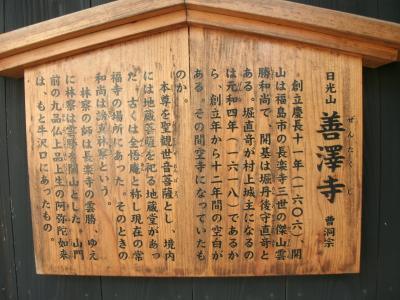 日光山 善澤寺 曹洞宗
ぜんたくじ
創立慶長十一年(一六〇六)、開
山は福島市の長楽寺三世の傑山雲
勝和尚で、開基は堀丹後守直竒と
ある。堀直竒が村上城主になるの
は元和四年(一六一八)であるか
ら、創立年から十二年間の空白が
ある。その間空寺になっていたも
のか。
本尊を聖観世音菩薩とし、境内
には地蔵菩薩を祀る地蔵堂があっ
た。古くは全悟庵と称し現在の常
福寺の場所にあった。そのときの
和尚は誘真林察という。
林察の師は長楽寺の雲勝、ゆえ
に林察は雲勝を開山とした。山門
前の九品仏上品上生の阿弥陀如来
は、もと牛沢口にあったもの。